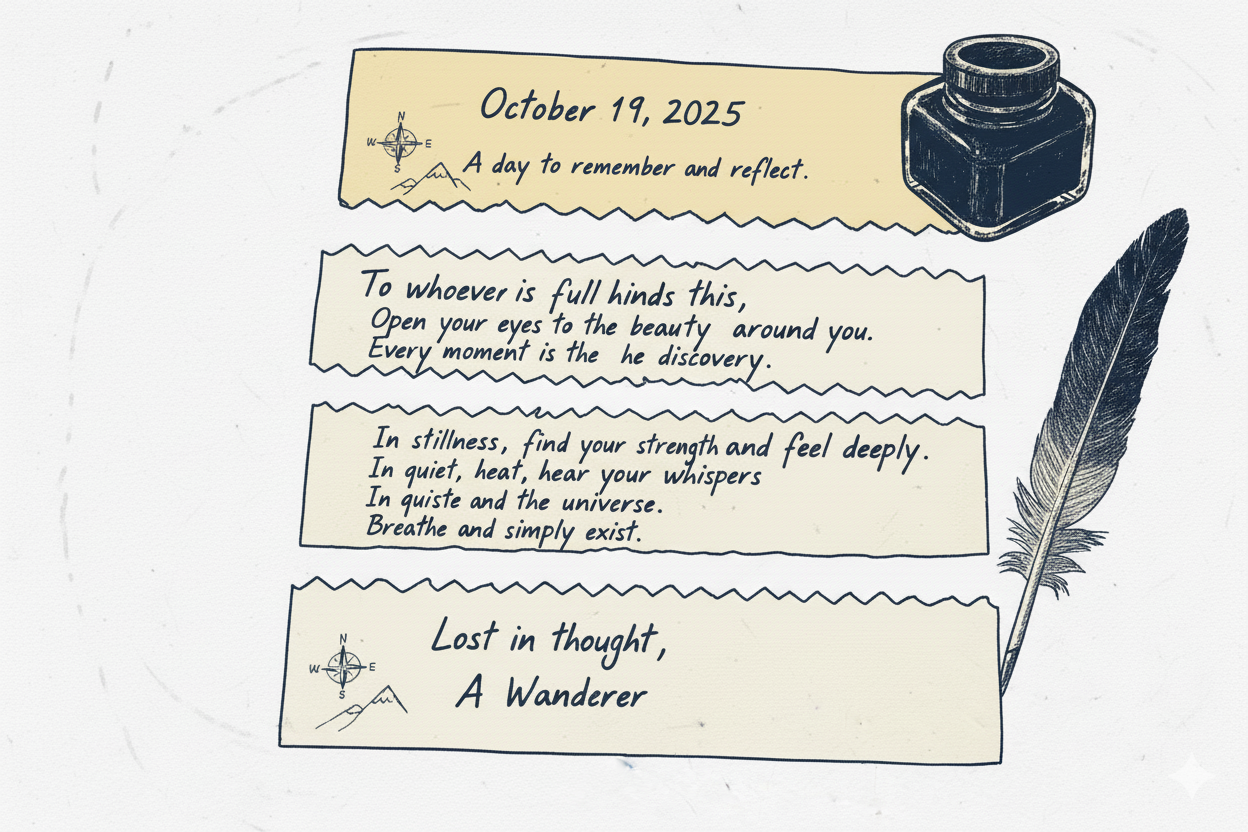 October 19, 2025
N
W E
S
A day to remember and reflect.
To whoever is full hinds this,
Open your eyes to the beauty around you.
Every moment is the he discovery.
In stillness, find your strength and feel deeply.
In quiet, heat, hear your whispers
In quiste and the universe.
Breathe and simply exist.
Lost in thought,
N
W E
S
A Wanderer